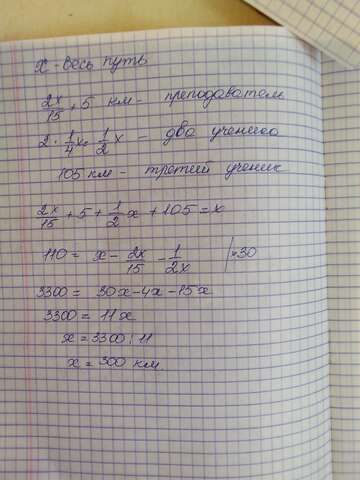 x - весь путь
2x/15 + 5 км - преподаватель
2 · 1/4 x = 1/2 x - два ученика
105 км - третий ученик
2x/15 + 5 + 1/2 x + 105 = x
110 = x - 2x/15 - 1/2x |·30
3300 = 30x - 4x - 15x
3300 = 11x
x = 3300 : 11
x = 300 км